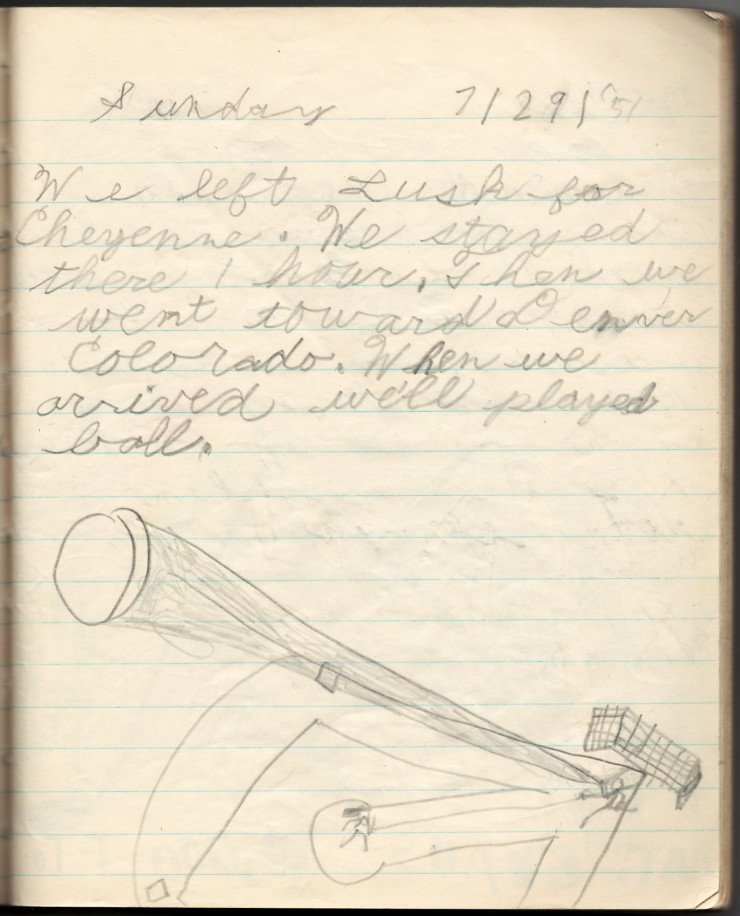 Sunday 7/29/51
We left Lusk for
Cheyenne. We stayed
there 1 hour. Then we
went toward Denver
Colorado. When we
arrived we'll played
ball.